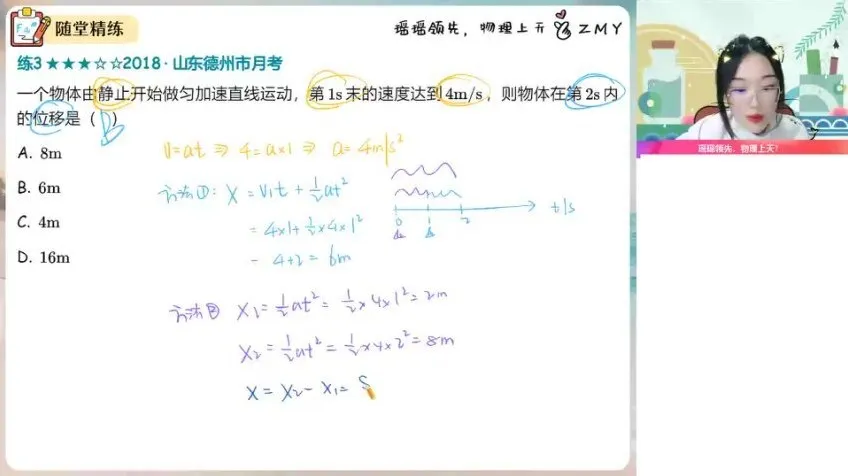 随堂精练
瑶瑶领先，物理上天 ZMY
练3 ★★★☆☆2018·山东德州市月考
一个物体由静止开始做匀加速直线运动，第1s末的速度达到4m/s，则物体在第2s内
的位移是（ B ）
A. 8m
B. 6m
C. 4m
D. 16m
V=at ⇒ 4=a×1 ⇒ a=4m/s²
方法①: X = V₁t + ½at²
= 4×1+½×4×1²
= 4+2 = 6m
0 1 2 t/s
方法② X₁=½at²=½×4×1²=2m
X₂=½at²=½×4×2²=8m
X= X₂-X₁=
瑶瑶领先，物理上天！